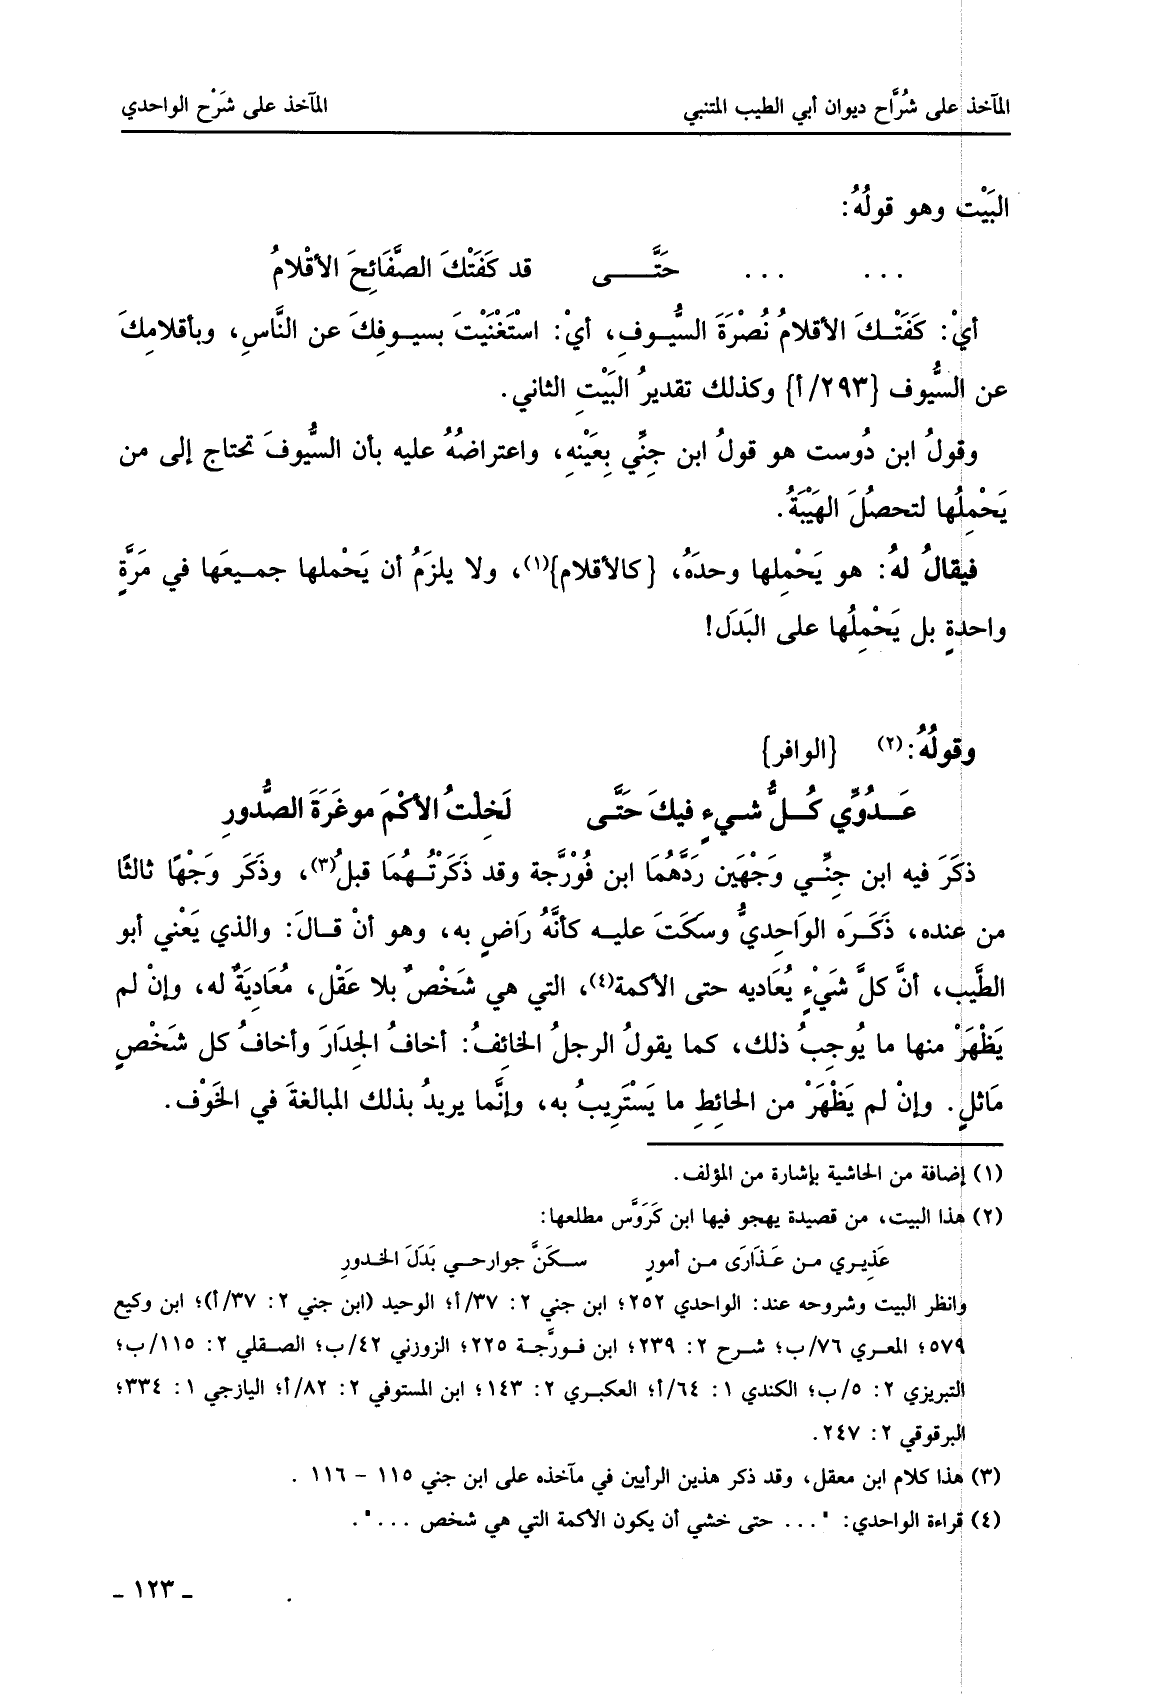 المآخذ على شُرَّاح ديوان أبي الطيب المتنبي المآخذ على شَرْح الواحدي
البَيْت وهو قولُهُ:
... ... حَتَّــــى قد كَفَتْكَ الصَّفَائِحَ الأقْلامُ
أيْ: كَفَتْـكَ الأقلامُ نُصْرَةَ السُّيـوفِ، أيْ: اسْتَغْنَيْتَ بسيـوفِكَ عن النَّاسِ، وبأقلامِكَ
عن السُّيوف {٢٩٣/أ} وكذلك تقديرُ البَيْتِ الثاني.
وقولُ ابن دُوست هو قولُ ابن جِنِّي بِعَيْنهِ، واعتراضُهُ عليه بأن السُّيوفَ تحتاج إلى من
يَحْمِلُها لتحصلُ الهَيْبَةُ.
فيقالُ لهُ: هو يَحْمِلها وحدَهُ، {كالأقلام}(١)، ولا يلزَمُ أن يَحْملها جميـعَها في مَرَّةٍ
واحدةٍ بل يَحْمِلُها على البَدَل!
وقولُهُ:(٢) {الوافر}
عَــدُوِّي كُــلُّ شــيءٍ فيكَ حَتَّـى لَخِلْتُ الأكْمَ موغَرَةَ الصُّدورِ
ذكَرَ فيه ابن جِنِّـي وَجْهَين رَدَّهُمَا ابن فُوْرَّجة وقد ذَكَرْتُـهُمَا قبلُ(٣)، وذَكَر وَجْهًا ثالثًا
من عنده، ذَكَـرَه الوَاحِديُّ وسكَتَ عليـه كأنَّهُ رَاضٍ به، وهو أنْ قـالَ: والذي يَعْني أبو
الطَّيب، أنَّ كلَّ شَيْءٍ يُعَاديه حتى الأكمة(٤)، التي هي شَخْصٌ بلا عَقْل، مُعَاديَةٌ له، وإنْ لم
يَظْهَرْ منها ما يُوجِبُ ذلك، كما يقولُ الرجلُ الخائفُ: أخافُ الجِدَارَ وأخافُ كل شَخْصٍ
مَاثلٍ. وإنْ لم يَظْهَرْ من الحائِطِ ما يَسْتَريبُ به، وإنَّما يريدُ بذلك المبالغةَ في الخَوْف.
(١) إضافة من الحاشية بإشارة من المؤلف.
(٢) هذا البيت، من قصيدة يهجو فيها ابن كَرَوَّس مطلعها:
عَذِيري مـن عَـذَارَى مـن أمورٍ سـكَنَّ جوارحـي بَدَلَ الخـدورِ
وانظر البيت وشروحه عند: الواحدي ٢٥٢؛ ابن جني ٢: ٣٧/أ؛ الوحيد (ابن جني ٢: ٣٧/أ)؛ ابن وكيع
٥٧٩؛ المعـري ٧٦/ب؛ شـرح ٢: ٢٣٩؛ ابن فـورَّجـة ٢٢٥؛ الزوزني ٤٢/ب؛ الصـقلي ٢: ١١٥/ب؛
التبريزي ٢: ٥/ب؛ الكندي ١: ٦٤/أ؛ العكبـري ٢: ١٤٣؛ ابن المستوفي ٢: ٨٢/أ؛ اليازجي ١: ٣٣٤؛
البرقوقي ٢: ٢٤٧.
(٣) هذا كلام ابن معقل، وقد ذكر هذين الرأيين في مآخذه على ابن جني ١١٥ – ١١٦ .
(٤) قراءة الواحدي: "... حتى خشي أن يكون الأكمة التي هي شخص ...".
ـ ١٢٣ ـ